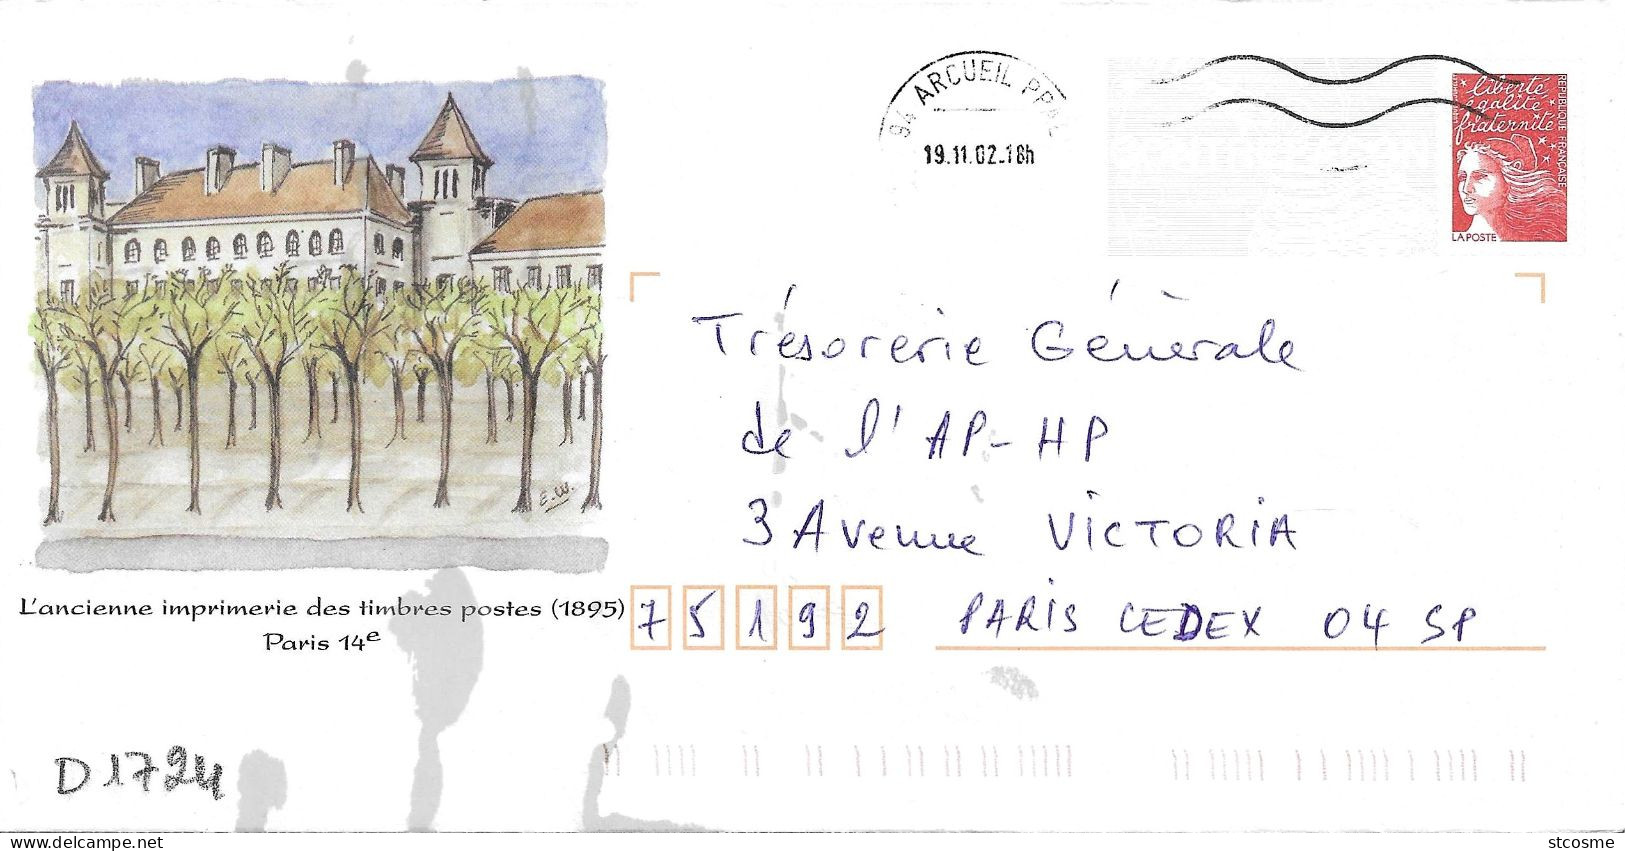 94 ARCUEIL PPAL
19.11.02-18h
liberté
égalité
fraternité
RÉPUBLIQUE FRANÇAISE
LA POSTE
Trésorerie Générale
de l'AP-HP
3 Avenue VICTORIA
75192 PARIS CEDEX 04 SP
E.W.
L'ancienne imprimerie des timbres postes (1895)
Paris 14e
D1724
delcampe.net
stcosme